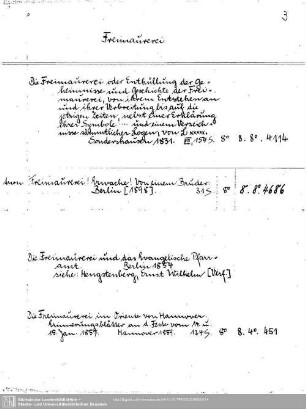 3
Freimaurerei
Die Freimaurerei oder Enthüllung der Ge-
heimnisse und Geschichte der Frei-
maurerei, von ihrem Entstehen an
und ihrer Verbreitung bis auf die
jetzigen Zeiten, nebst einer Erklärung
ihrer Symbole ... und einem Verzeich-
nisse sämmtlicher Logen, von L. xxxx.
Sondershausen 1831. 150 S. 8° 8. 8°. 4114
Freimaurerei! Erwache! Von einem Bruder
Berlin [1898]. 31 S. 8° 8. 8° 4686
Die Freimaurerei und das Evangelische Pfarr-
amt. Berlin 1854
siehe: Hengstenberg, Ernst Wilhelm [Verf.]
Die Freimaurerei im Oriente von Hannover
Erinnerungsblätter an d. Feste vom 14. u.
15. Jan. 1857. Hannover 1857. 124 S. 8° 8. 4°. 451